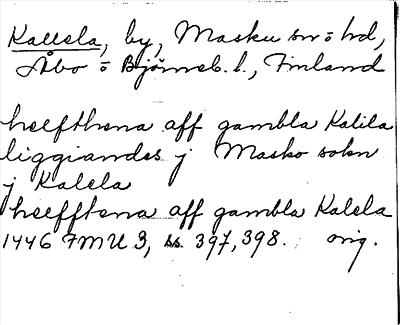 Kallela, by, Masku sn o hd,
Åbo o Björneb. l., Finland
helfthena aff gambla Kalila
liggiandes j Masko sokn
j Kalela
helfftena aff gambla Kalela
1446 FMU 3, ss. 397, 398. orig.